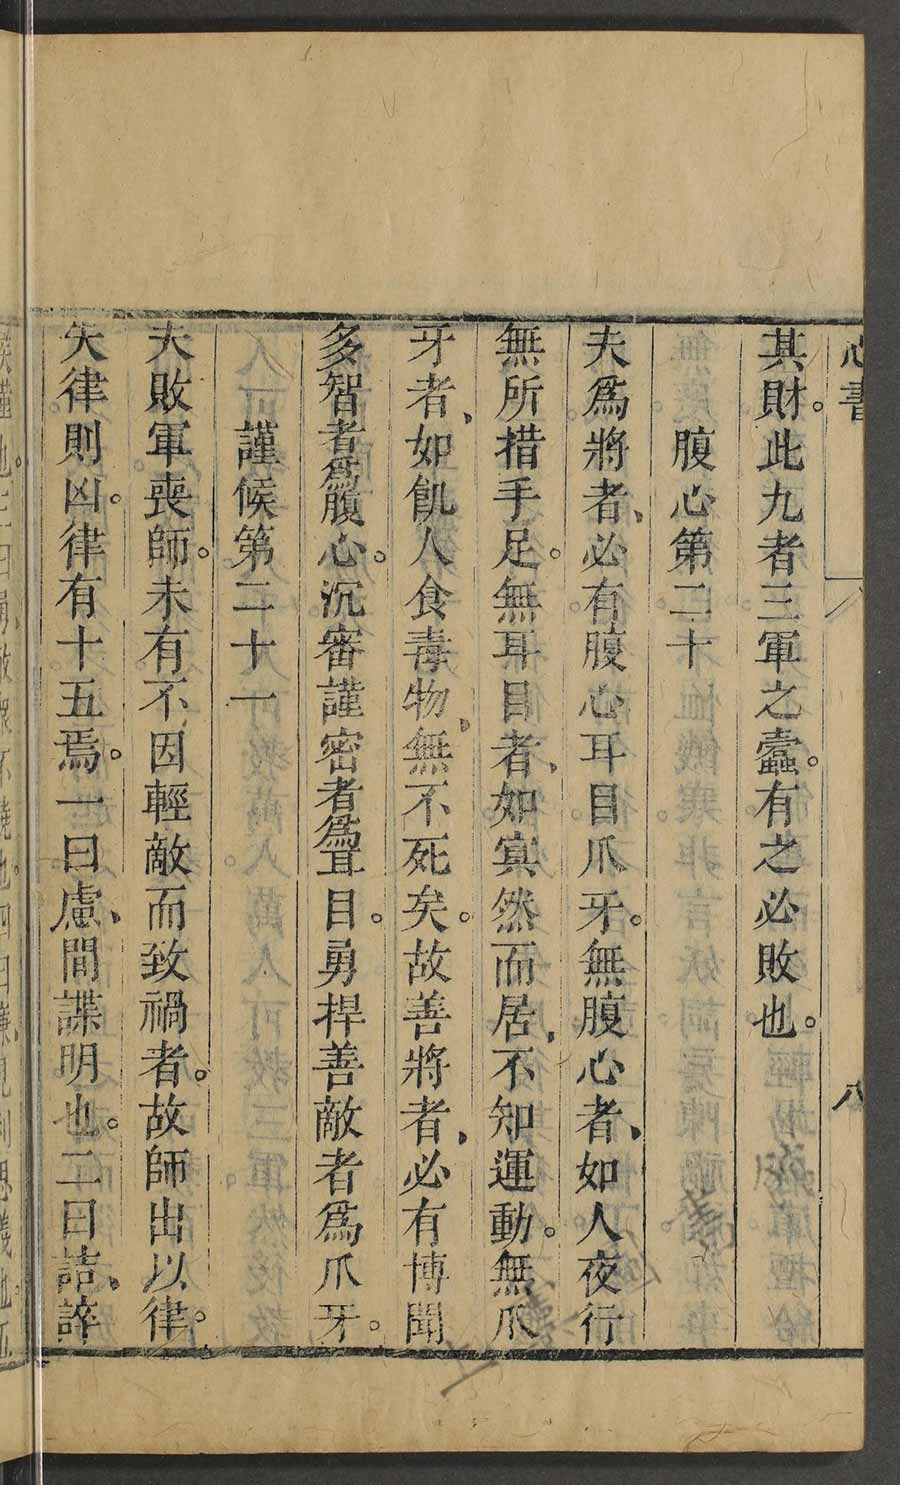 心書
八
其財。此九者三軍之蠹。有之必敗也。
腹心第二十
夫爲將者、必有腹心耳目爪牙。無腹心者、如人夜行
無所措手足。無耳目者、如㝠然而居、不知運動。無爪
牙者、如飢人食毒物、無不死矣。故善將者、必有博聞
多智者爲腹心。沉審謹密者爲耳目。勇捍善敵者爲爪牙。
謹候第二十一
夫敗軍喪師。未有不因輕敵而致禍者。故師出以律。
失律則凶。律有十五焉。一曰慮、間諜明也。二曰詰、誶